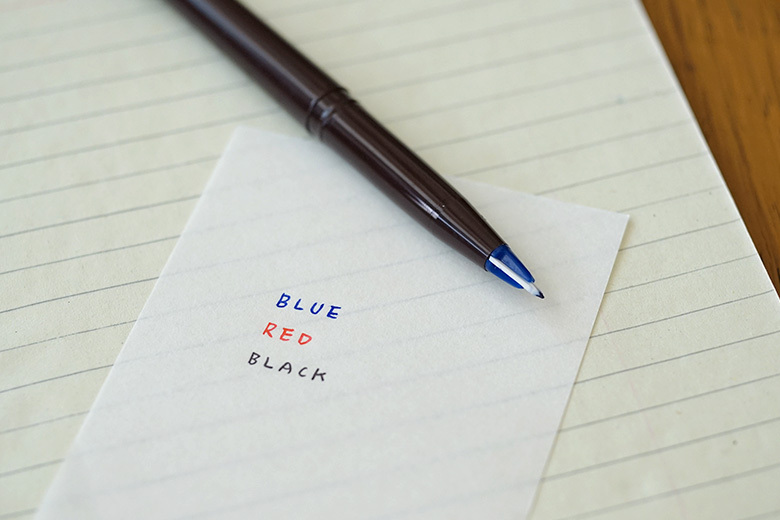 BLUE
RED
BLACK